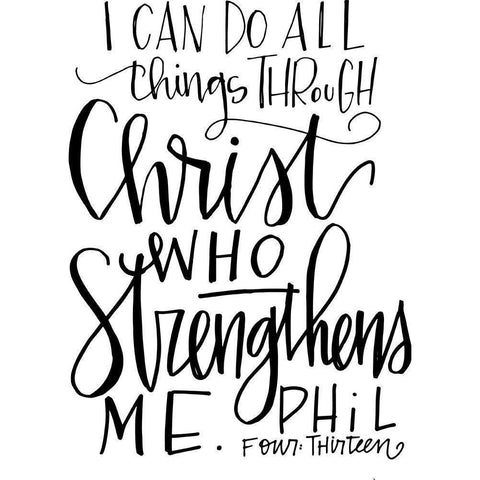 I CAN DO ALL
things THROUGH
Christ
WHO
Strengthens
ME. PHiL
FOUR: THIRTEEN